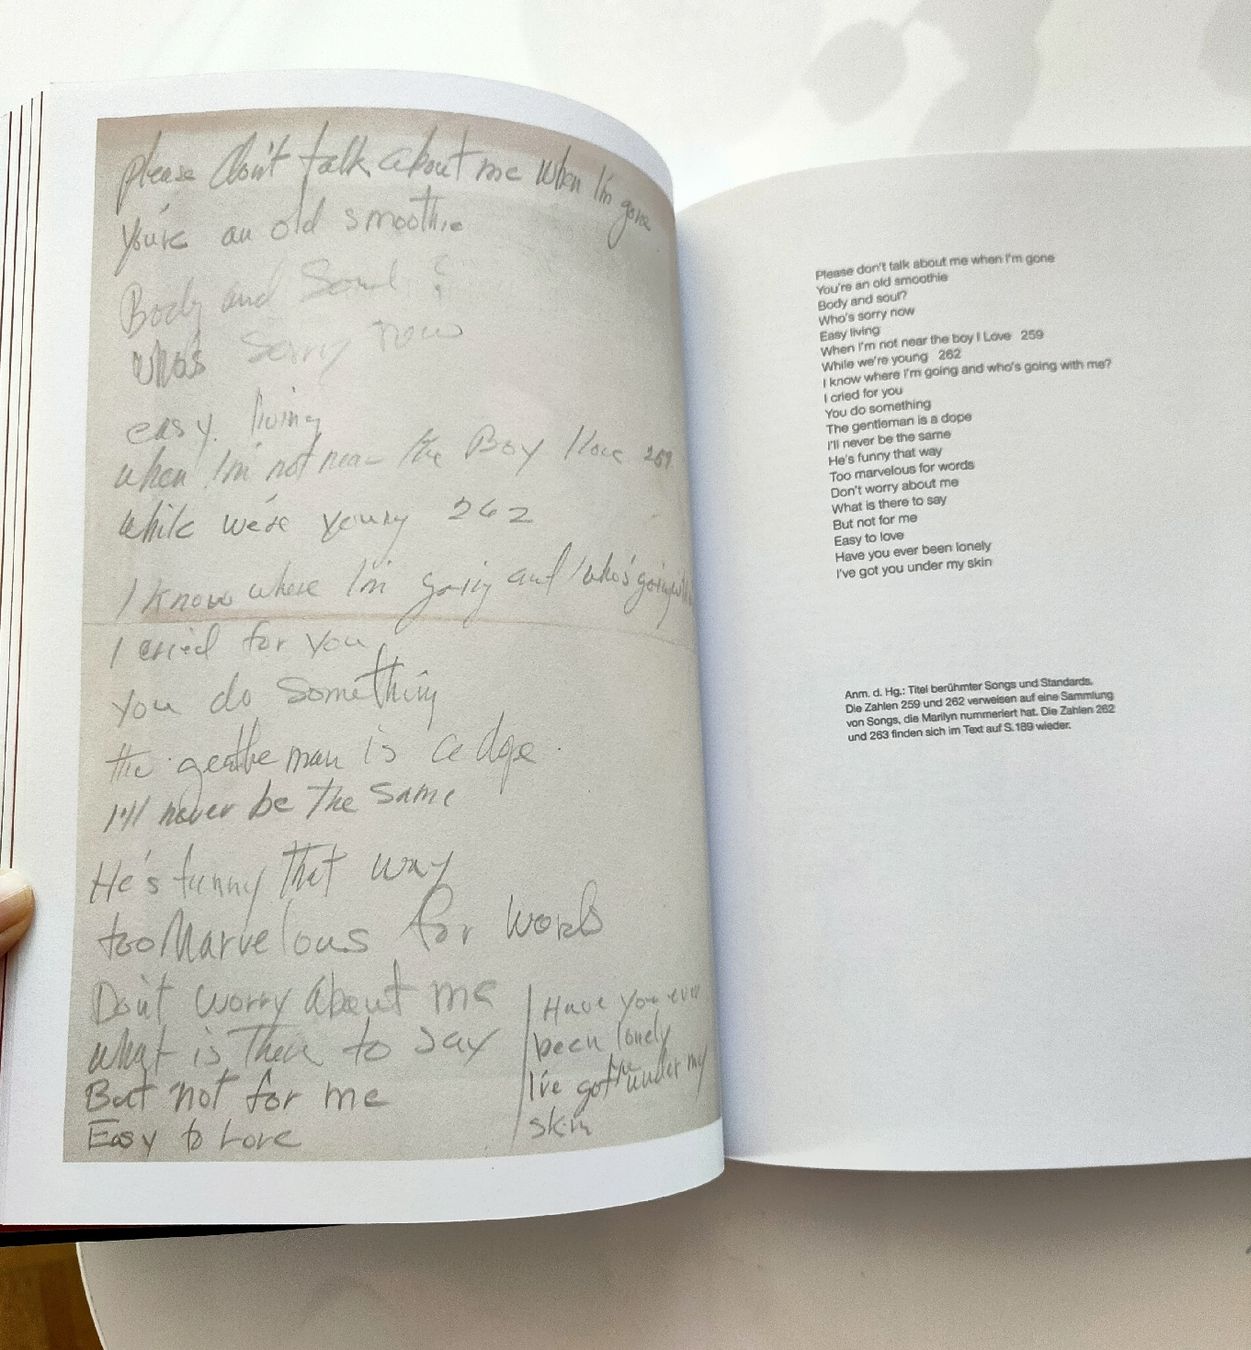 please don't talk about me when I'm gone
you're an old smoothie
Body and Soul?
who's sorry now
easy living
when I'm not near the Boy I love 259
while we're young 262
I know where I'm going and who's going with
I cried for you
you do something
the gentleman is a dope
I'll never be the same
He's funny that way
too Marvelous for words
Don't worry about me
what is there to say
But not for me
Easy to Love
Have you ever
been lonely
I've got under my
skin
Please don't talk about me when I'm gone
You're an old smoothie
Body and soul?
Who's sorry now
Easy living
When I'm not near the boy I Love 259
While we're young 262
I know where I'm going and who's going with me?
I cried for you
You do something
The gentleman is a dope
I'll never be the same
He's funny that way
Too marvelous for words
Don't worry about me
What is there to say
But not for me
Easy to love
Have you ever been lonely
I've got you under my skin
Anm. d. Hg.: Titel berühmter Songs und Standards.
Die Zahlen 259 und 262 verweisen auf eine Sammlung
von Songs, die Marilyn nummeriert hat. Die Zahlen 262
und 263 finden sich im Text auf S. 189 wieder.